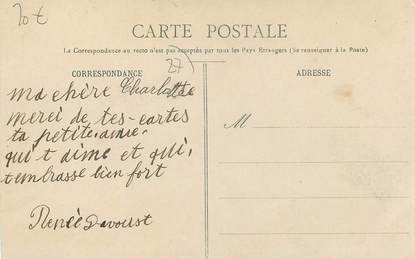 20 €
CARTE POSTALE
La Correspondance au recto n'est pas acceptée par tous les Pays Etrangers (Se renseigner à la Poste)
27)
CORRESPONDANCE
ADRESSE
ma chère Charlotte
merci de tes cartes
ta petite amie
qui t aime et qui
t embrasse bien fort
Renée Davoust
M